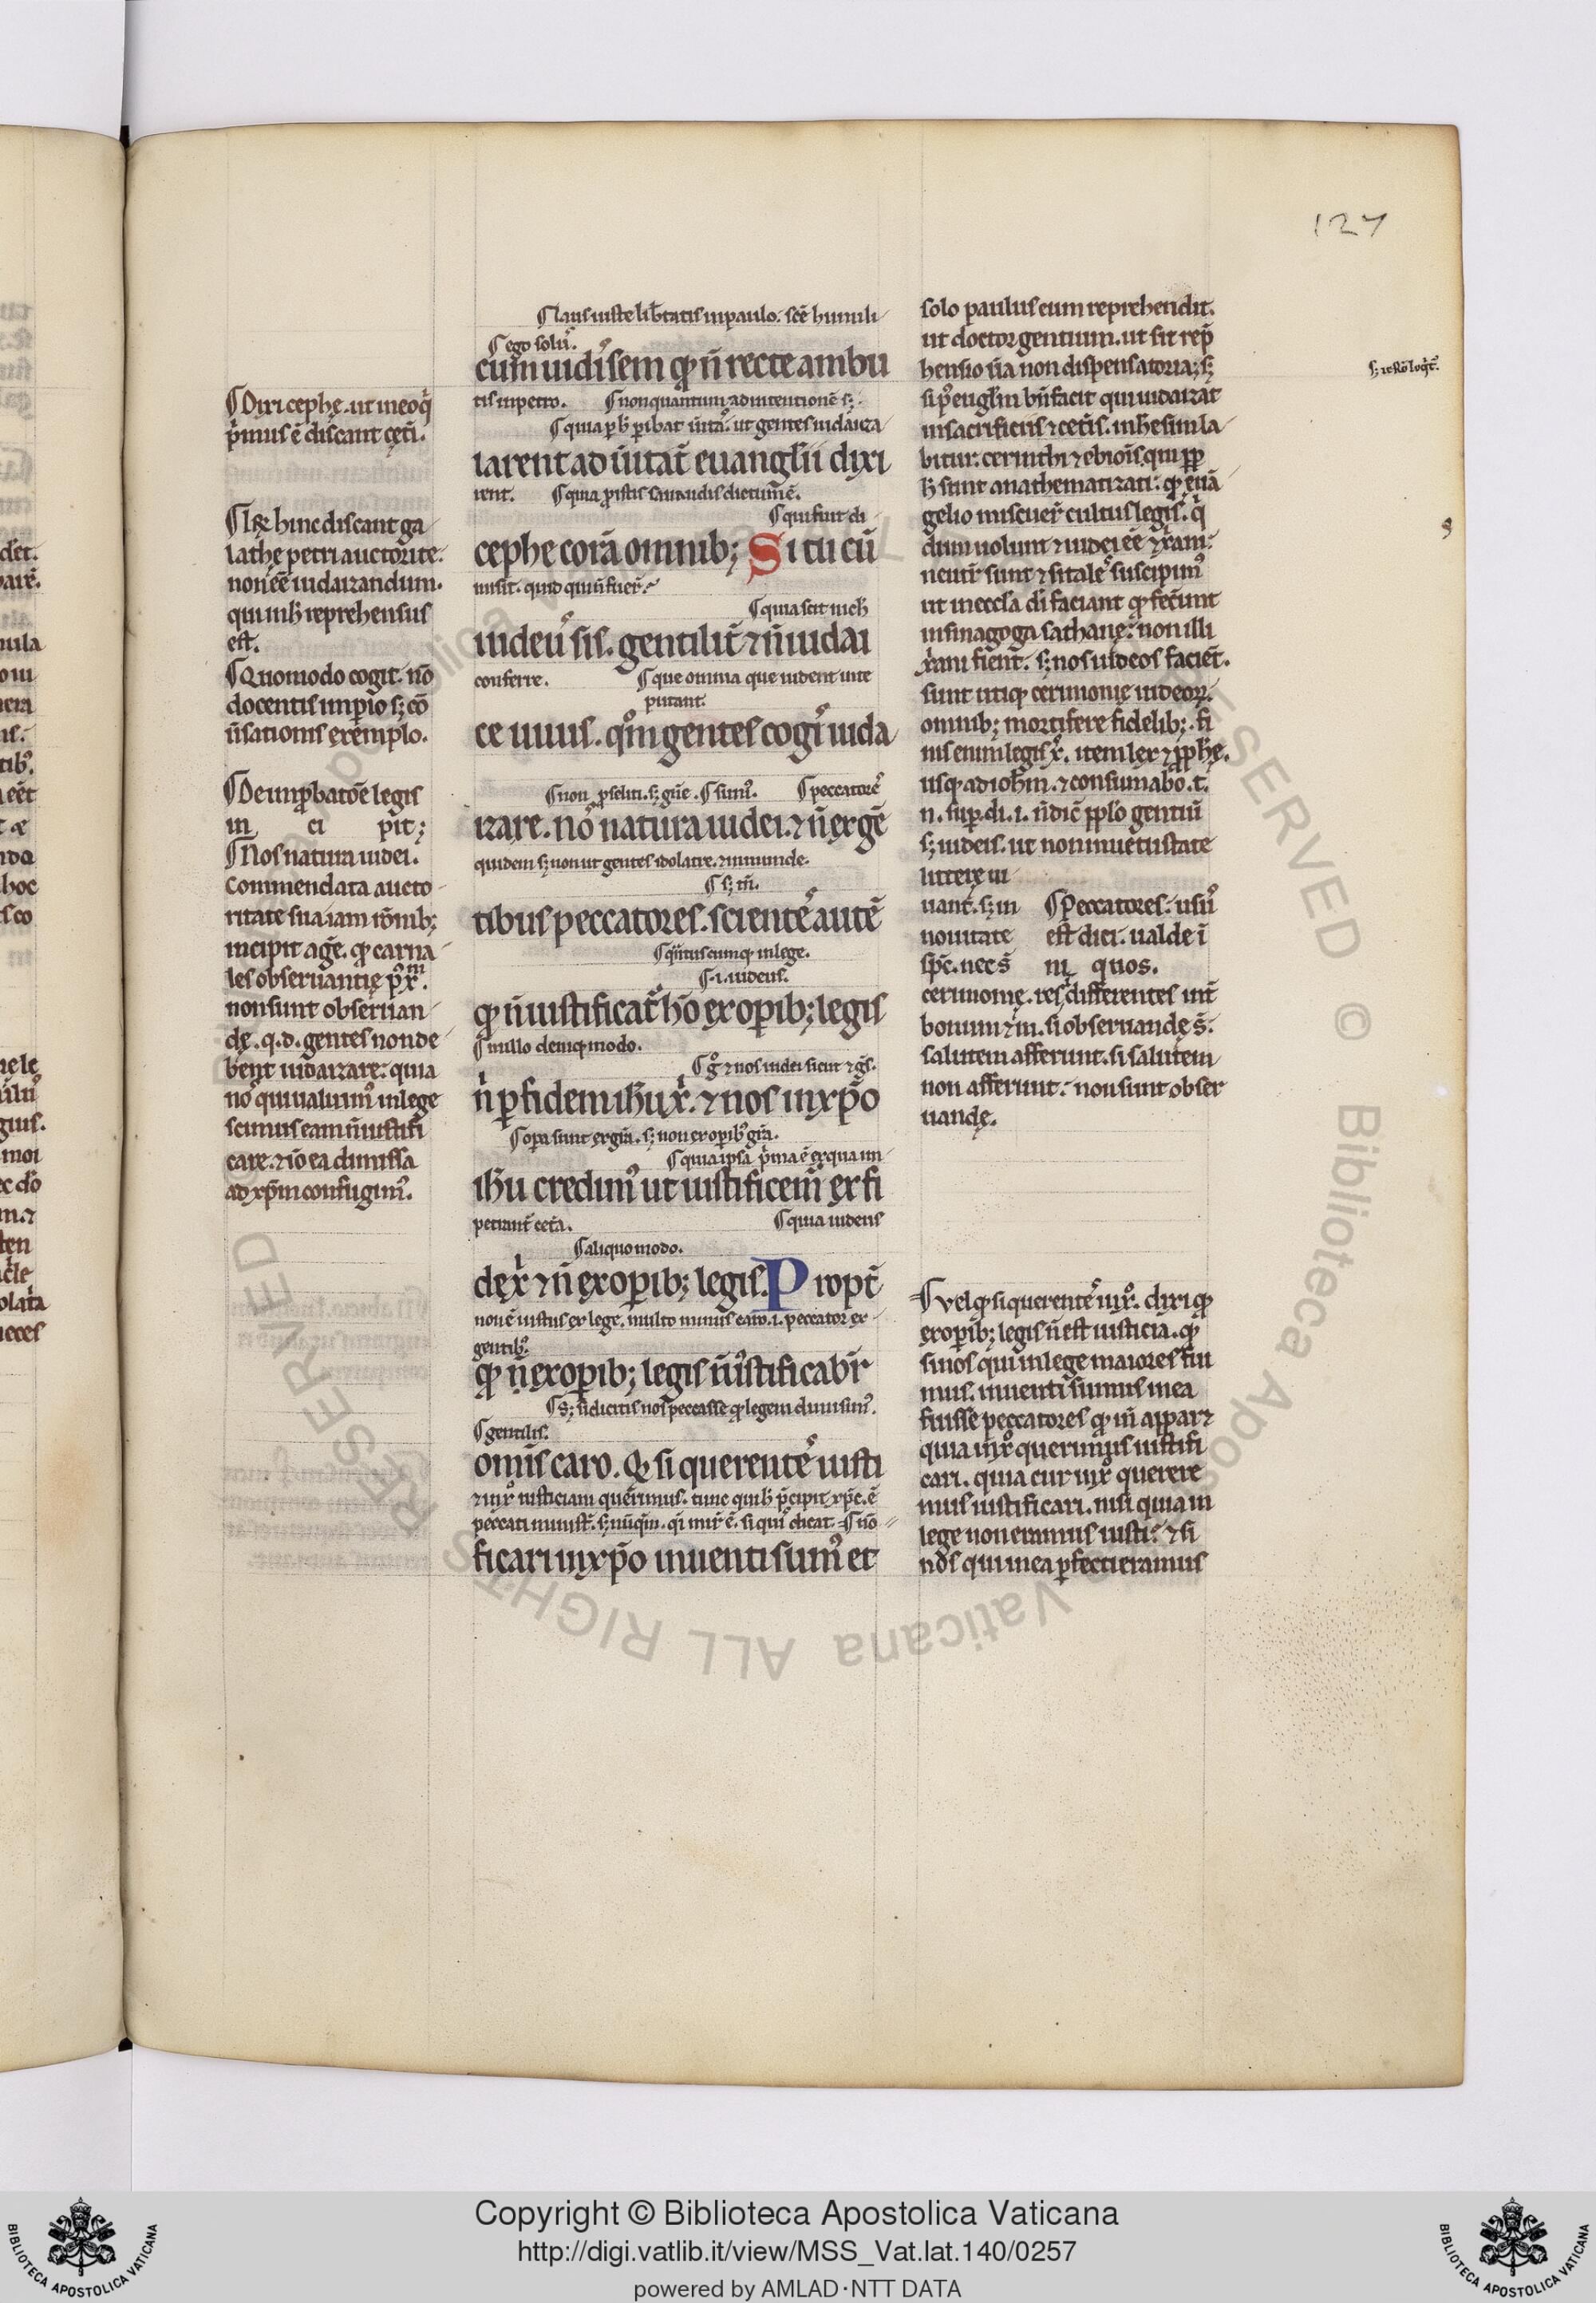 127
¶ Dixi cephę. ut in eo q̇
p̄mus ē discant cęti.
¶ Ī& hinc discant ga
lathę petri auctorite.
non eē̄ iudaizandum.
qui in h̄ reprehensus
est.
¶ Quomodo cogit. nō
docentis imperio s; cō
ūsationis exemplo.
¶ De improbatōe legis
in ci pit;
¶ Nos natura iudei.
commendata aucto
ritate sua iam rōnib;
incipit agē. qȝ carna
les obseruantię pꝰ xm̄.
non sunt obseruan
dę. q. d. gentes non de
bent iudaizare: quia
noˢ qui ualuimꝰ in lege
scimus eam n̄ iustifi
care. ⁊ iō ea dimissa
ad xp̄m confugimꝰ.
¶ laus iuste lib̄tatis in paulo. scē humili
¶ ego solꝰ.
cum uidiˢsem qȝ n̄ recte ambu
tis in petro. ¶ non quantum ad intentionē s;
¶ quia p h̄ p̄ibat ūitaˢ. ut gentes iudaiza
larent ad ūitat̄ euangl̄ii dixi
rent. ¶ quia p istis saluandis dictum ē.
¶ qui fuit di
cephe corā omnib; Si tu cū
misit. quid qui n̄ fuer̄.
¶ quia scit nich̄
iudeuˢ sis. gentilit̄ ⁊ n̄ iudai
conferre. ¶ que omnia que uident uite
putant.
ce uiuis. qͦm gentes cogiˢ iuda
¶ non pseliti. s; gn̄e. ¶ sumꝰ. ¶ peccatoreˢ
izare. noˢ natura iudei. ⁊ n̄ ex gē
quidem s; non ut gentes idolatre. ⁊ inmunde.
¶ s; tn̄.
tibus peccatores. scienteˢ autē
¶ qn̄tuscumqȝ in lege.
¶ .i. iudeus.
qȝ n̄ iustificat̄ hō ex opib; legis
¶ nullo deniqȝ modo.
¶ g̊ ⁊ nos iudei sicut ⁊ gˢ.
n̄ p fidem ih̄u x̄. ⁊ nos in xp̄o
¶ opa sunt ex gr̄a. s; non ex opibꝰ gr̄a.
¶ quia ipsa p̄ma ē ex qua im
ih̄u credimꝰ ut iustificem̄ ex fi
petrant̄ cet̄a. ¶ quia iudeus
¶ aliquo modo.
de x̄ ⁊ n̄ ex opib; legis. Propt̄
non ē iustus ex lege. multo minus caro .i. peccator ex
gentibꝰ.
qȝ n̄ ex opib; legis n̄ iustificab̄r
¶ S; si dicitis nos peccasse qȝ legem dimisimꝰ.
¶ gentilis.
omīs caro. Qȝ si querenteˢ iusti
⁊ in x̊ iusticiam querimus. tunc qui h̄ p̄cipit xp̄c. ē
peccati minist̄. s; nūq̄m. qi mir̄ ē. si quiˢ dicat. ¶ nō
ficari in xp̄o inuenti sumꝰ et
solo paulus eum reprehendit.
ut doctor gentium. ut sit rep̄
hensio ūa non dispensatoria; s;
si p̱ꝰ eugl̄m bn̄ facit qui iudaizat
in sacrificiis ⁊ cet̄is. in h̄esim la
bitur. cerinthi ⁊ ebioīs, qui pp
h̄ sunt anathematizati: qȝ euā
gelio miscuer̄ cultus legis. q̇
dum uolunt ⁊ iudei eē ⁊ xr̄ani:
neutr̄ sunt ⁊ si taleˢ suscipimꝰ
ut in eccl̄a di faciant qȝ fec̄unt
in sinagoga sathanę: non illi
xr̄ani fient. s; nos iudeos faciēt.
sunt utiqȝ cerimonię iudeoꝝ.
omnib; mortifere fidelib;. fi
nis enim legis x̄. item lex ⁊ pph̄ę.
usqȝ ad ioh̄m. ⁊ consumabo. t.
n. sup. di. i. n̄ dic̄ ppl̄o gentiū
s; iudeis. ut non in uetustate
litterę ui
uant̄. s; in ¶ Peccatores. usuˢ
nouitate est dici. ualde ī
spc̄. nec s̄ in quos.
cerimonię. res differentes int̄
bonum ⁊ m̄. si obseruandę s̄.
salutem afferunt. si salutem
non afferunt: non sunt obser
uandę.
¶ Vel qȝ si querenteˢ in x̊. dixi qȝ
ex opib; legis n̄ est iusticia. qȝ
si nos qui in lege maiores fui
mus. inuenti sumus in ea
fuisse peccatores qȝ in̄ appar⁊
quia in x̊ querimus iustifi
cari. quia cur in x̊ querere
mus iustificari. nisi quia in
lege non eramus iusti: ⁊ si
nos qui in ea pfecti eramus
Copyright © Biblioteca Apostolica Vaticana
http://digi.vatlib.it/view/MSS_Vat.lat.140/0257
powered by AMLAD·NTT DATA
BIBLIOTECA APOSTOLICA VATICANA
BIBLIOTECA APOSTOLICA VATICANA